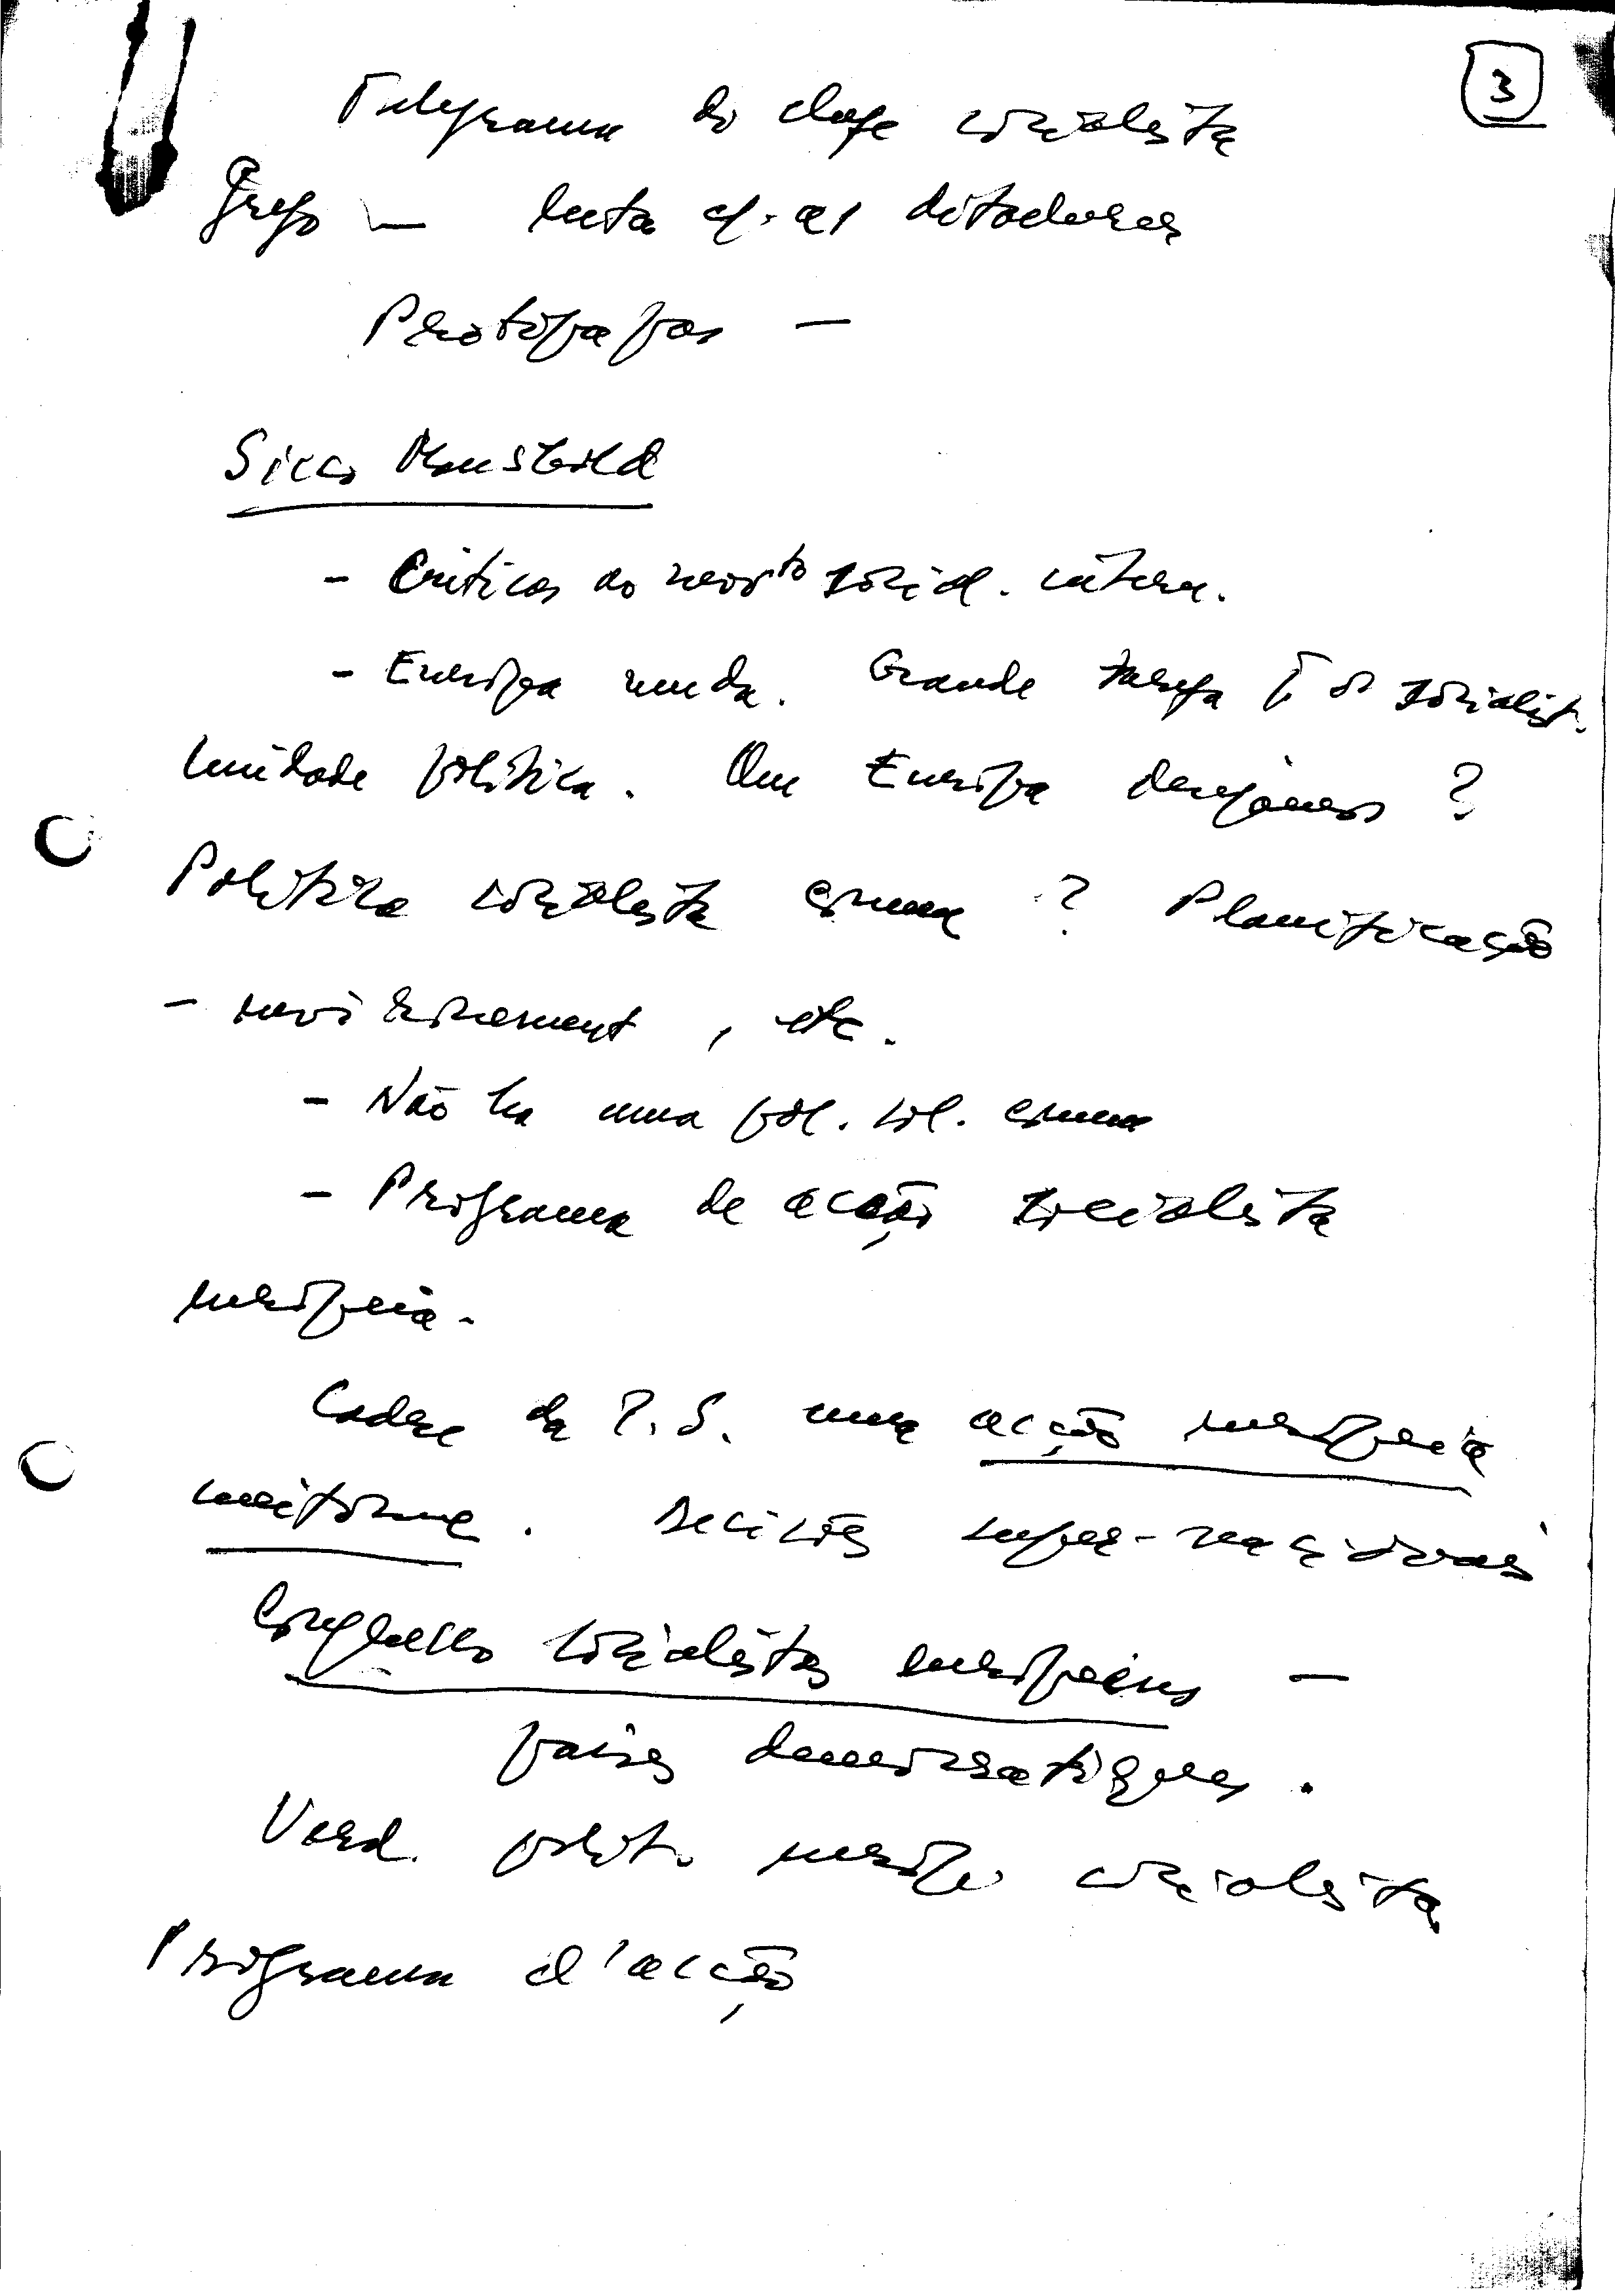 3
Telegrama do chefe socialista
Grego — luta c/. as ditaduras
Protopapas —
Sicco Mansholt
- Criticas ao movto social. intern.
- Europa unida. Grande tarefa p. os socialist.
Unidade politica. Que Europa desejamos ?
Politica socialista comum ? Planificação
- environnement , etc.
- Não ha uma pol. soc. comum
- Programa de acção socialista
europeia.
Cadre da I.S. uma acção europeia
uniforme . Decisões supra-nacionais
Congresso socialistas europeus —
paises democratiques .
Verd. polit. europ. socialista
Programa d'acção